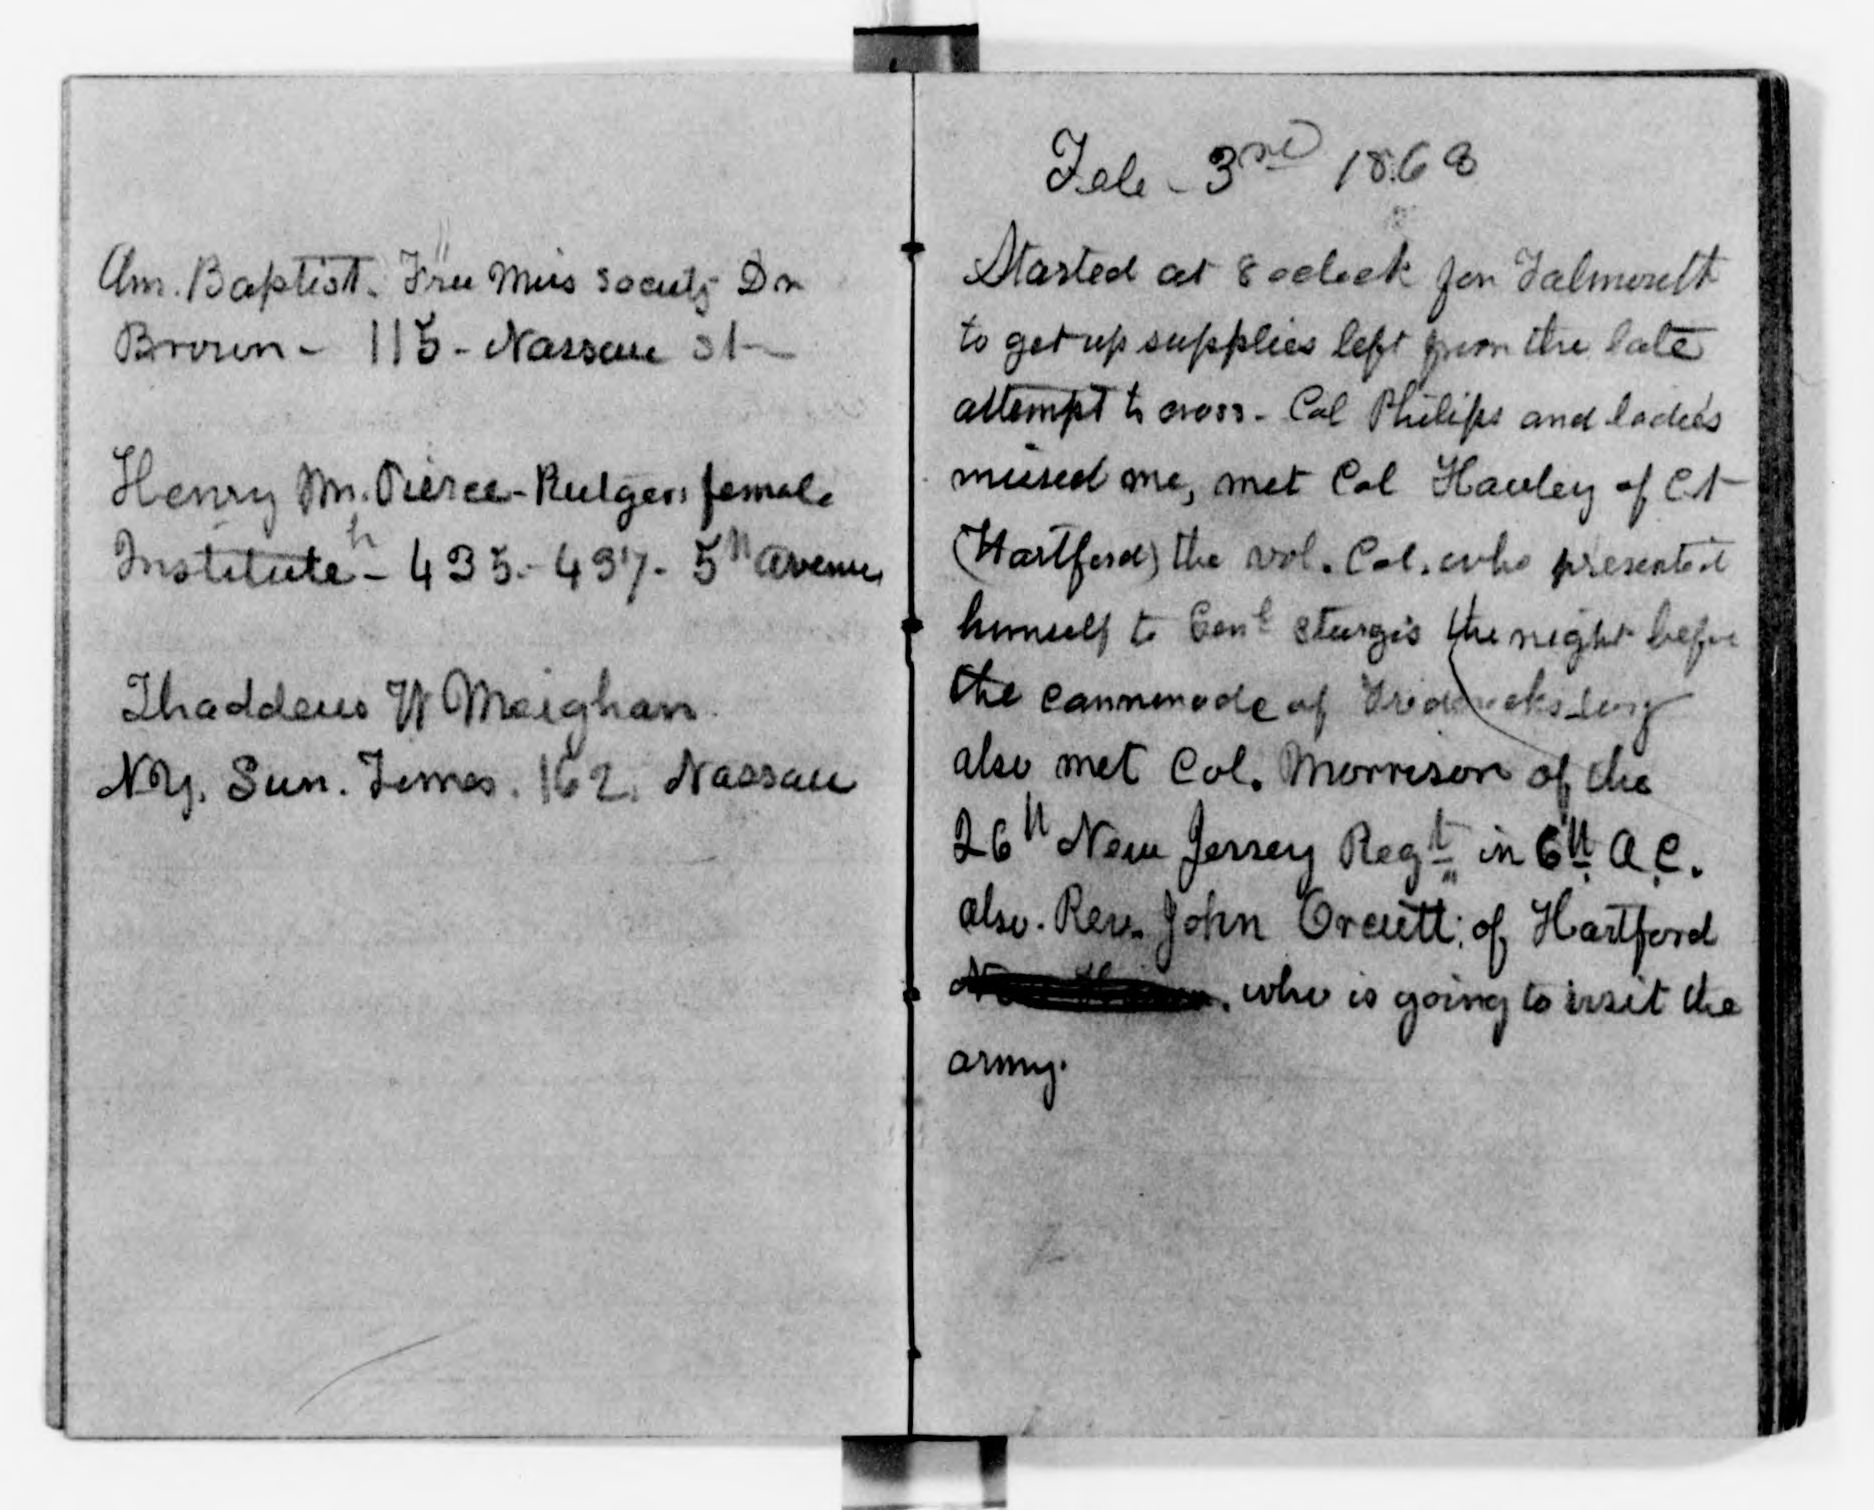 Am. Baptist. Free Miss Society Dr
Brown - 115 - Nassau St -
Henry M. Pierce - Rutgers female
Institute - 435 - 437 - 5th Avenue,
Thaddeus W Meighan
N.Y. Sun. Times. 162. Nassau
Feb - 3rd 1863
Started at 8 oclock for Falmouth
to get up supplies left from the late
attempt to cross - Col Philips and ladies
missed me, met Col Hawley of Ct
(Hartford) the vol. Col. who presented
himself to Genl Sturgis the night before
the cannonade of Fredericksburg
also met Col. Morrison of the
26th New Jersey Regt in 6th A.C.
also. Rev. John Orcutt. of Hartford
who is going to visit the
army.